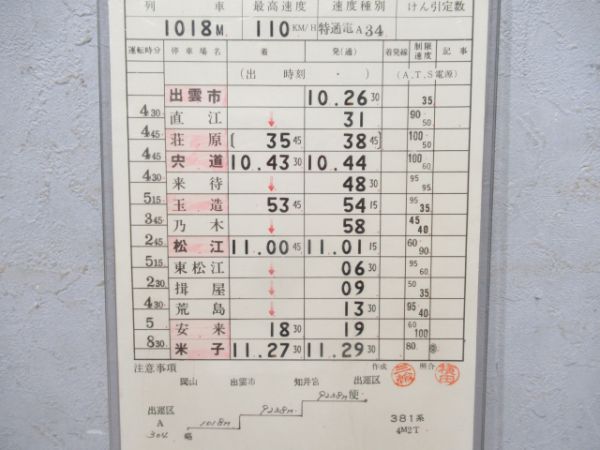 列車 最高速度 速度種別 けん引定数
1018M 110KM/H 特通電A34
運転時分 停車場名 着 発(通) 着発線 制限速度 記事
(出 時刻 ・ ) (A.T.S電源)
出雲市 10.26 30 35
4 30 直江 ↓ 31 90 50
4 45 荘原 〔 35 45 38 45〕 100 50
4 45 宍道 10.43 30 10.44 100 60
4 30 来待 ↓ 48 30 95
5 15 玉造 53 45 54 15 95 35
3 45 乃木 ↓ 58 45 40
2 45 松江 11.00 45 11.01 15 60 90
5 15 東松江 ↓ 06 30 95
2 30 揖屋 ↓ 09 50 35
4 30 荒島 ↓ 13 30 95 40
5 安来 18 30 19 60 100
8 30 米子 11.27 30 11.29 30 80
注意事項 作成 照合
岡山 出雲市 知井宮 出運区
出運区 1018M 9238M 9238M
A
304
381系
4M2T